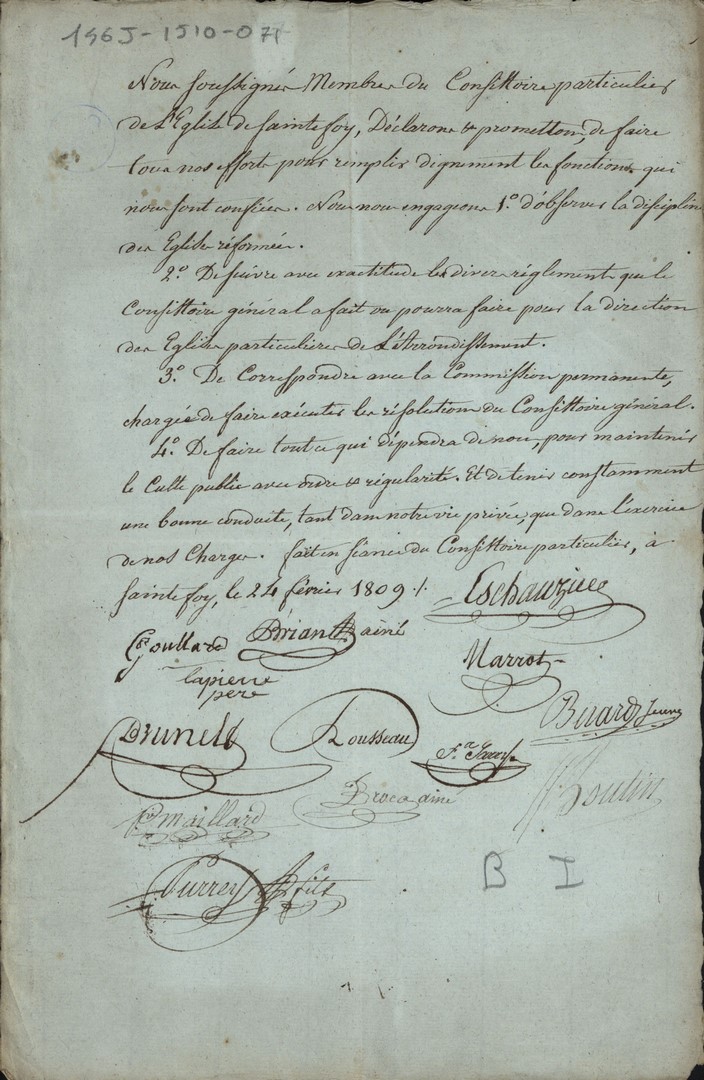 196J-1510-071
Nous soussignés Membres du Consistoire particulier
de L'Eglise de Sainte foy, Déclarons & promettons, de faire
tous nos efforts pour remplir dignement les fonctions qui
nous sont confiées. Nous nous engageons 1.° d'observer la discipline
des Eglises réformées.
2.° De suivre avec exactitude les divers réglements que le
Consistoire général a fait ou pourra faire pour la direction
des Eglises particulieres de L'Arrondissement.
3.° De Correspondre avec la Commission permanente,
chargée de faire exécuter les résolutions du Consistoire général.
4.° De faire tout ce qui dépendra de nous, pour maintenir
le Culte public avec ordre & régularité. Et de tenir constamment
une bonne conduite, tant dans notre vie privée, que dans l'exercice
de nos Charges. fait en séance du Consistoire particulier, à
Sainte foy, le 24 février 1809 ./.
Eschauzier
Goullard Briand ainé
Marrot
lapierre
pere
Brunet Rousseau
jeune
Broca ainé
Boutin
maillard
Purrey fils
B I